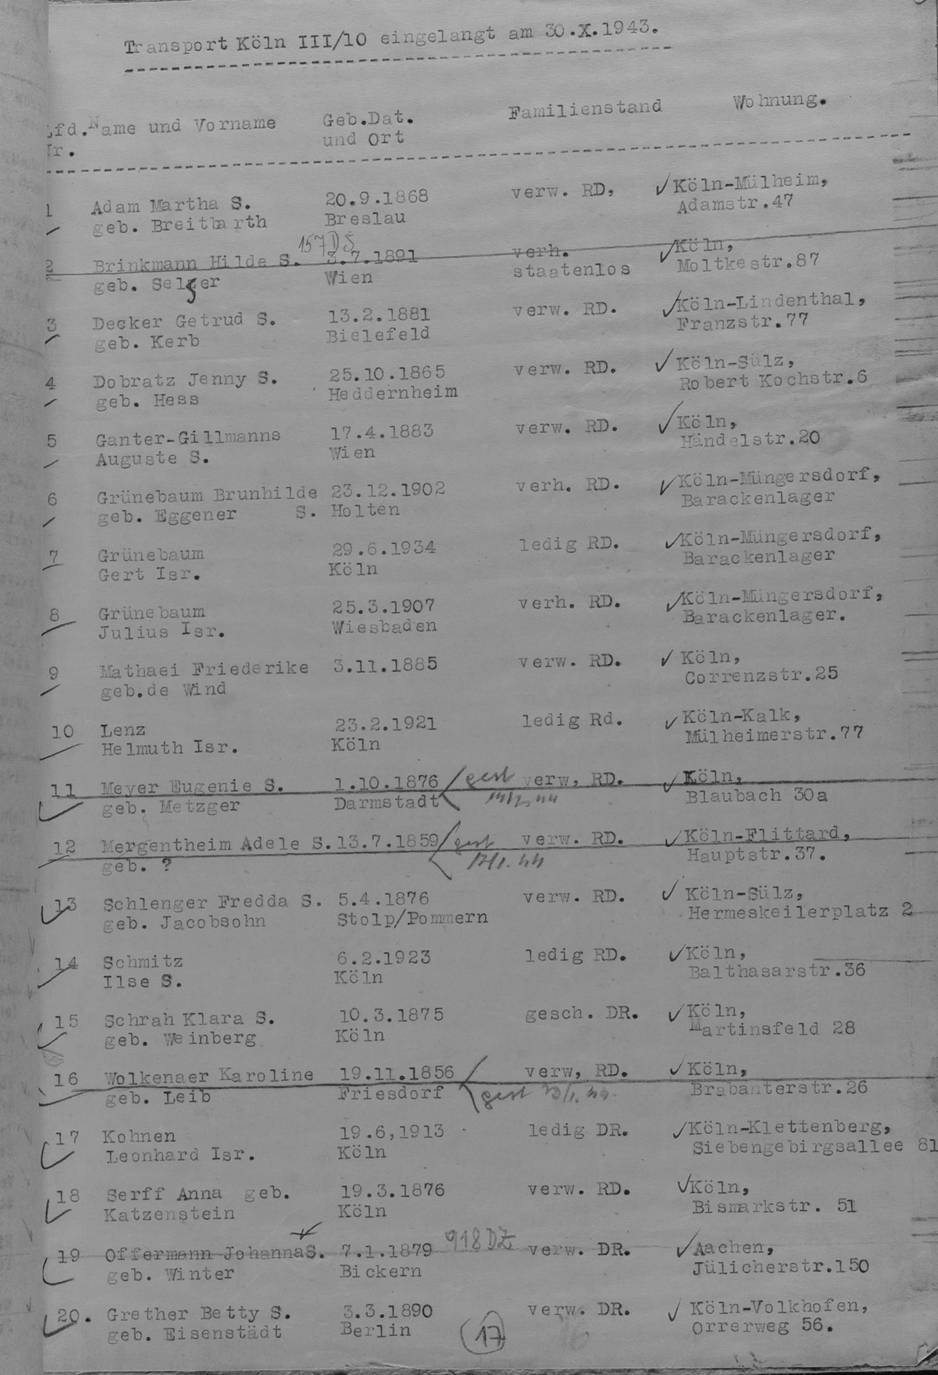 Transport Köln III/10 eingelangt am 30.X.1943.
fd. Name und Vorname Geb.Dat. Familienstand Wohnung.
r. und Ort
1 Adam Martha S. 20.9.1868 verw. RD, Köln-Mülheim,
geb. Breitbarth Breslau Adamstr.47
157DS
2 Brinkmann Hilde S. 3.7.1891 verh. Köln,
geb. Selger Wien staatenlos Moltkestr.87
3 Decker Getrud S. 13.2.1881 verw. RD. Köln-Lindenthal,
geb. Kerb Bielefeld Franzstr.77
4 Dobratz Jenny S. 25.10.1865 verw. RD. Köln-Sülz,
geb. Hess Heddernheim Robert Kochstr.6
5 Ganter-Gillmanns 17.4.1883 verw. RD. Köln,
Auguste S. Wien Händelstr.20
6 Grünebaum Brunhilde 23.12.1902 verh. RD. Köln-Müngersdorf,
geb. Eggener S. Holten Barackenlager
7 Grünebaum 29.6.1934 ledig RD. Köln-Müngersdorf,
Gert Isr. Köln Barackenlager
8 Grünebaum 25.3.1907 verh. RD. Köln-Müngersdorf,
Julius Isr. Wiesbaden Barackenlager.
9 Mathaei Friederike 3.11.1885 verw. RD. Köln,
geb.de Wind Correnzstr.25
10 Lenz 23.2.1921 ledig Rd. Köln-Kalk,
Helmuth Isr. Köln Mülheimerstr.77
11 Meyer Eugenie S. 1.10.1876 gest verw, RD. Köln,
geb. Metzger Darmstadt Blaubach 30a
12 Mergentheim Adele S. 13.7.1859 gest verw. RD. Köln-Flittard,
geb. ? 17/1. 44 Hauptstr.37.
13 Schlenger Fredda S. 5.4.1876 verw. RD. Köln-Sülz,
geb. Jacobsohn Stolp/Pommern Hermeskeilerplatz 2
14 Schmitz 6.2.1923 ledig RD. Köln,
Ilse S. Köln Balthasarstr.36
15 Schrah Klara S. 10.3.1875 gesch. DR. Köln,
geb. Weinberg Köln Martinsfeld 28
16 Wolkenaer Karoline 19.11.1856 verw, RD. Köln,
geb. Leib Friesdorf gest Brabanterstr.26
17 Kohnen 19.6,1913 ledig DR. Köln-Klettenberg,
Leonhard Isr. Köln Siebengebirgsallee 81
18 Serff Anna geb. 19.3.1876 verw. RD. Köln,
Katzenstein Köln Bismarkstr. 51
19 Offermann Johanna S. 7.1.1879 918DZ verw. DR. Aachen,
geb. Winter Bickern Jülicherstr.150
20. Grether Betty S. 3.3.1890 verw. DR. Köln-Volkhofen,
geb. Eisenstädt Berlin 17 Orrerweg 56.